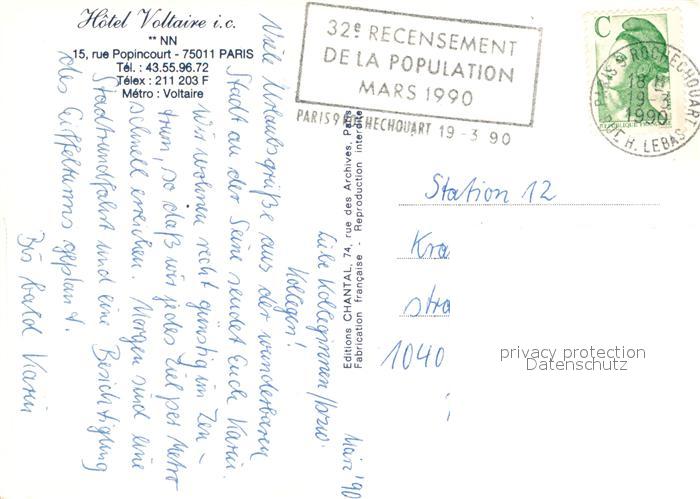 Hôtel Voltaire i.c.
** NN
15, rue Popincourt - 75011 PARIS
Tél. : 43.55.96.72
Télex : 211 203 F
Métro : Voltaire
32e RECENSEMENT
DE LA POPULATION
MARS 1990
PARIS 9 ROCHECHOUART 19 - 3 90
C
REPUBLIQUE
PARIS 9 ROCHECHOUART
18 H
19 - 3
1990
RUE H. LEBAS
Editions CHANTAL, 74, rue des Archives, Paris
Fabrication française - Reproduction interdite
März '90
Liebe Kolleginnen/bzw.
Kollegen!
Viele Urlaubsgrüße aus der wunderbaren
Stadt an der Seine sendet Euch Karin.
Wir wohnen recht günstig im Zen-
trum, so daß wir jedes Ziel per Metro
schnell erreichen. Morgen sind eine
Stadtrundfahrt und eine Besichtigung
des Eiffelturms geplant.
Bis bald Karin
Station 12
Kra
stra
1040
privacy protection
Datenschutz